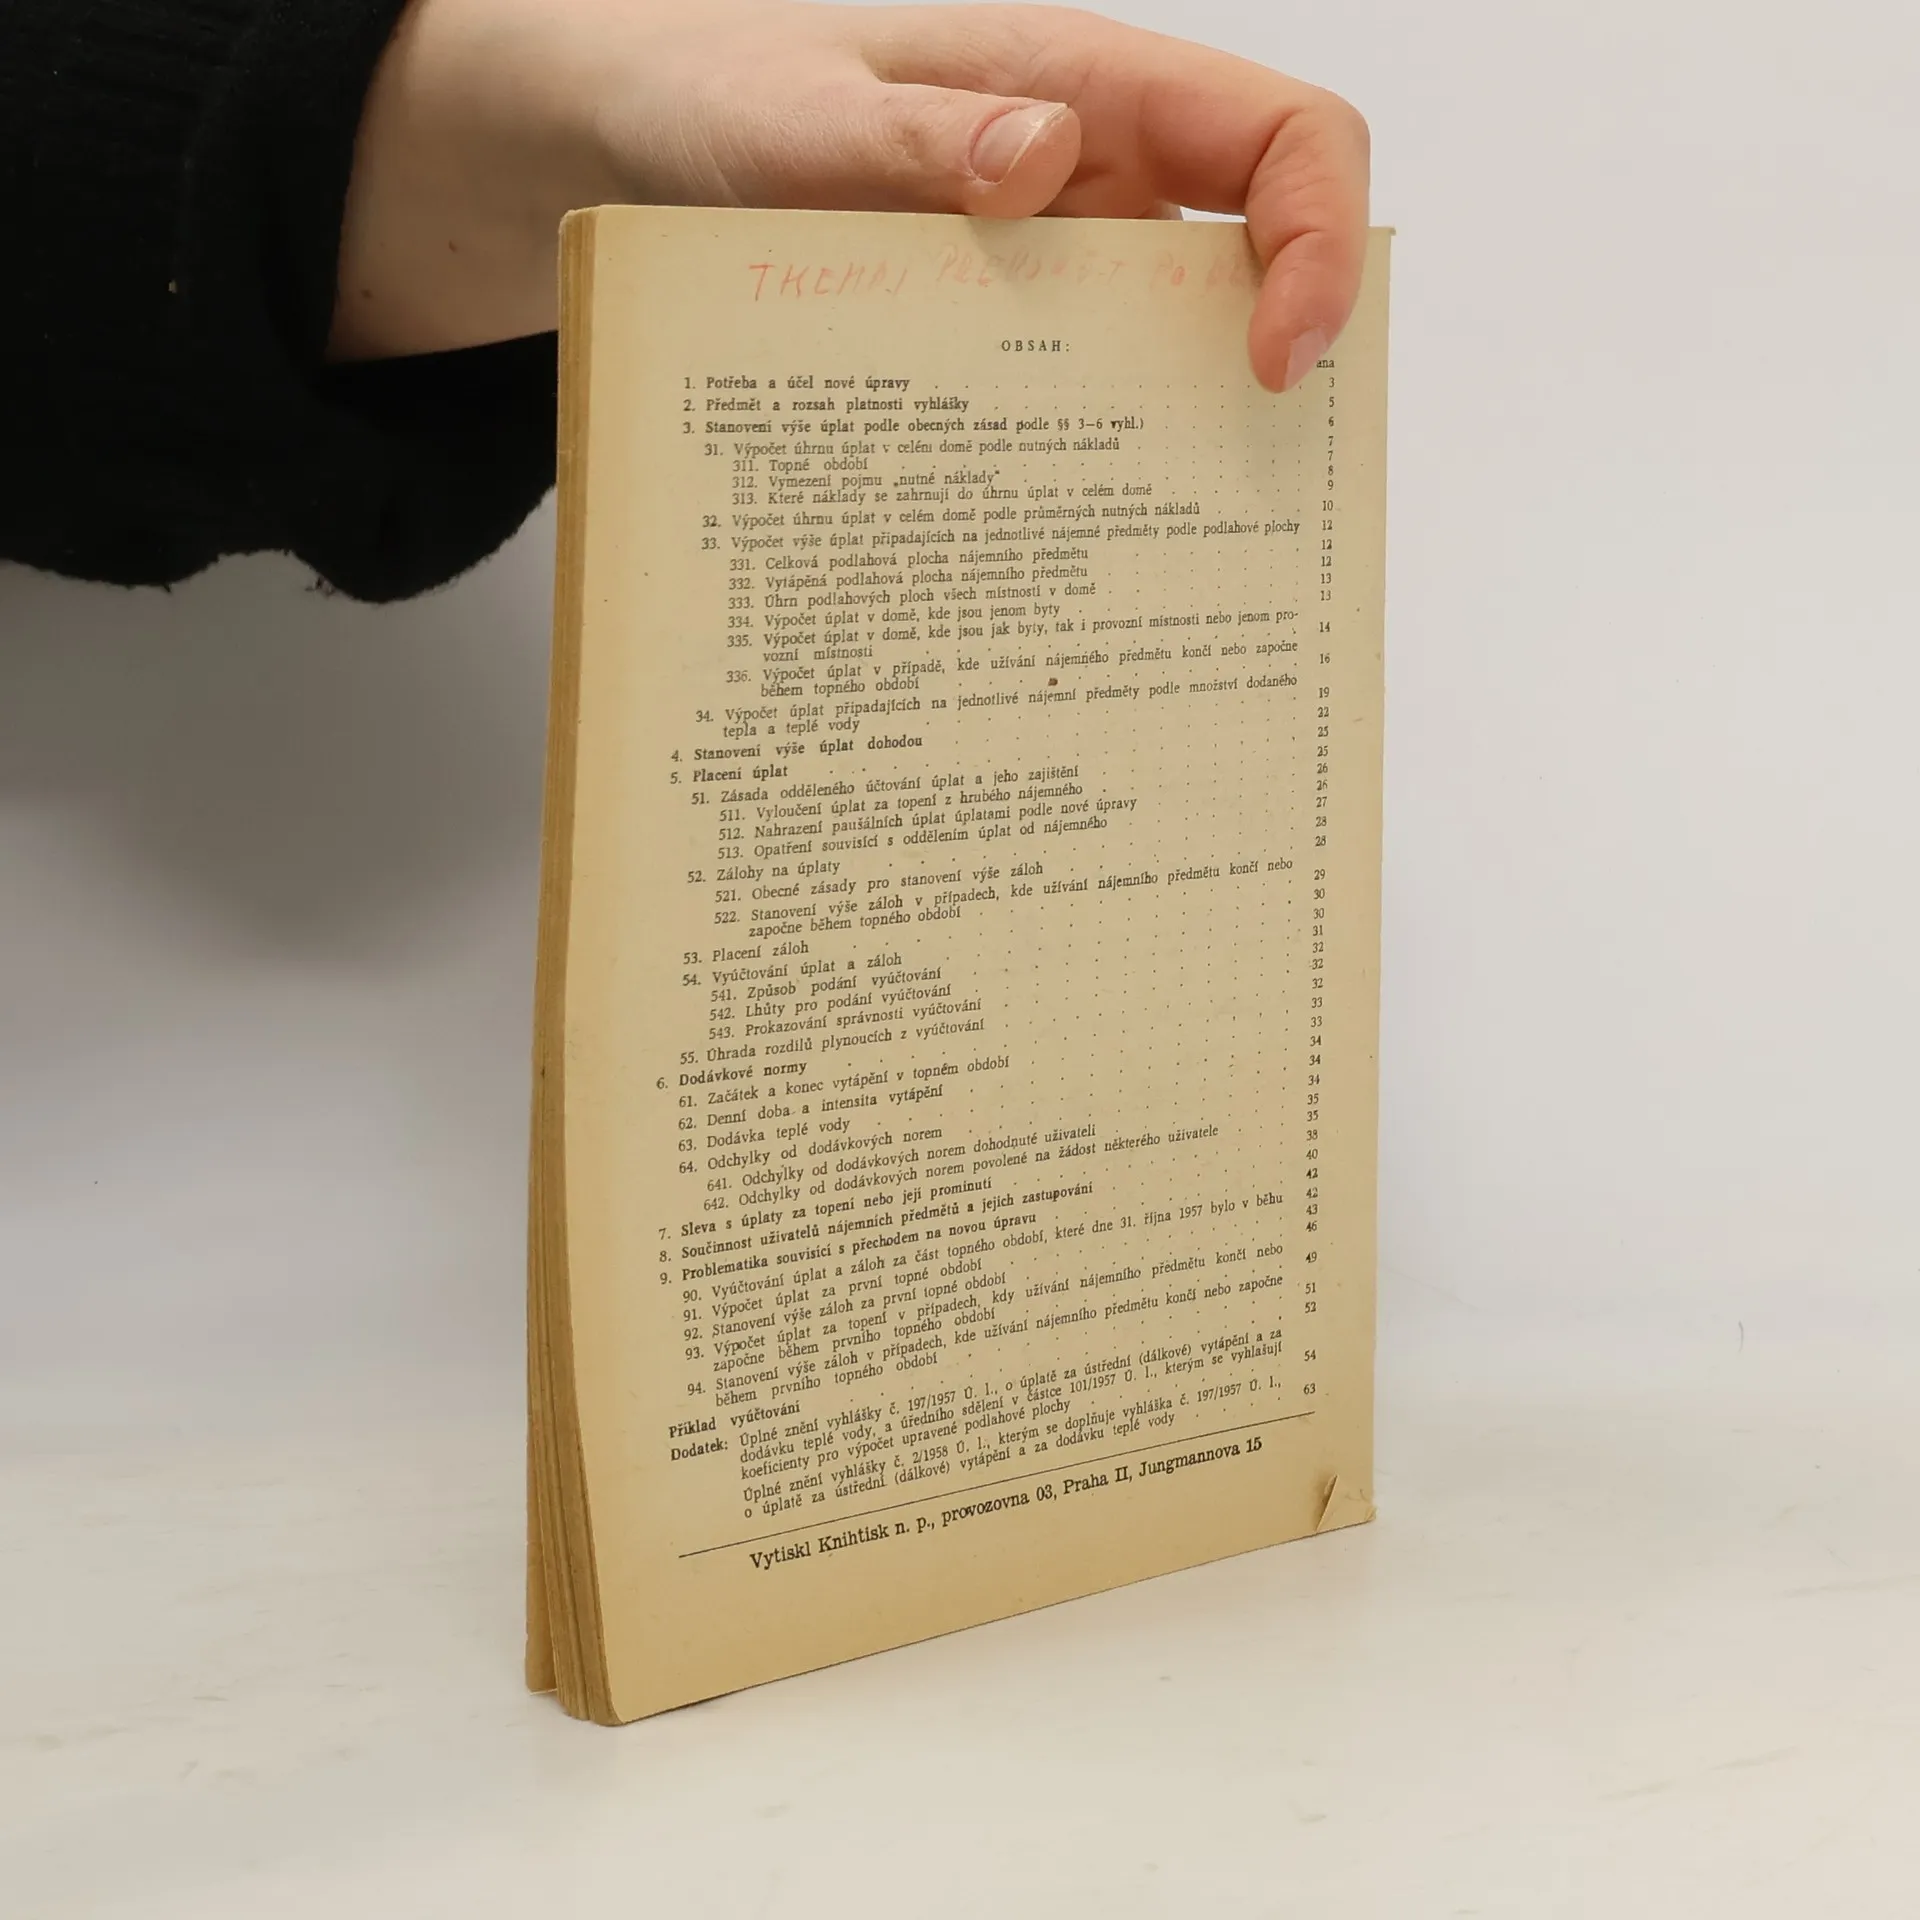 OBSAH:
ana
1. Potřeba a účel nové úpravy . . . 3
2. Předmět a rozsah platnosti vyhlášky . . . 5
3. Stanovení výše úplat podle obecných zásad podle §§ 3–6 vyhl.) . . . 6
31. Výpočet úhrnu úplat v celém domě podle nutných nákladů . . . 7
311. Topné období . . . 7
312. Vymezení pojmu „nutné náklady" . . . 8
313. Které náklady se zahrnují do úhrnu úplat v celém domě . . . 9
32. Výpočet úhrnu úplat v celém domě podle průměrných nutných nákladů . . . 10
33. Výpočet výše úplat připadajících na jednotlivé nájemné předměty podle podlahové plochy 12
331. Celková podlahová plocha nájemního předmětu . . . 12
332. Vytápěná podlahová plocha nájemního předmětu . . . 12
333. Úhrn podlahových ploch všech místností v domě . . . 13
334. Výpočet úplat v domě, kde jsou jenom byty . . . 13
335. Výpočet úplat v domě, kde jsou jak byty, tak i provozní místnosti nebo jenom pro-
vozní místnosti . . . 14
336. Výpočet úplat v případě, kde užívání nájemného předmětu končí nebo započne
během topného období . . . 16
34. Výpočet úplat připadajících na jednotlivé nájemní předměty podle množství dodaného
tepla a teplé vody . . . 19
4. Stanovení výše úplat dohodou . . . 22
5. Placení úplat . . . 25
51. Zásada odděleného účtování úplat a jeho zajištění . . . 25
511. Vyloučení úplat za topení z hrubého nájemného . . . 26
512. Nahrazení paušálních úplat úplatami podle nové úpravy . . . 26
513. Opatření souvisící s oddělením úplat od nájemného . . . 27
52. Zálohy na úplaty . . . 28
521. Obecné zásady pro stanovení výše záloh . . . 28
522. Stanovení výše záloh v případech, kde užívání nájemního předmětu končí nebo
započne během topného období . . . 29
53. Placení záloh . . . 30
54. Vyúčtování úplat a záloh . . . 30
541. Způsob podání vyúčtování . . . 31
542. Lhůty pro podání vyúčtování . . . 32
543. Prokazování správnosti vyúčtování . . . 32
55. Úhrada rozdílů plynoucích z vyúčtování . . . 32
6. Dodávkové normy . . . 33
61. Začátek a konec vytápění v topném období . . . 33
62. Denní doba a intensita vytápění . . . 34
63. Dodávka teplé vody . . . 34
64. Odchylky od dodávkových norem . . . 34
641. Odchylky od dodávkových norem dohodnuté uživateli . . . 35
642. Odchylky od dodávkových norem povolené na žádost některého uživatele . . . 35
7. Sleva s úplaty za topení nebo její prominutí . . . 38
8. Součinnost uživatelů nájemních předmětů a jejich zastupování . . . 40
9. Problematika souvisící s přechodem na novou úpravu . . . 42
90. Vyúčtování úplat a záloh za část topného období, které dne 31. října 1957 bylo v běhu 42
91. Výpočet úplat za první topné období . . . 43
92. Stanovení výše záloh za první topné období . . . 46
93. Výpočet úplat za topení v případech, kdy užívání nájemního předmětu končí nebo
započne během prvního topného období . . . 49
94. Stanovení výše záloh v případech, kde užívání nájemního předmětu končí nebo započne
během prvního topného období . . . 51
Příklad vyúčtování . . . 52
Dodatek: Úplné znění vyhlášky č. 197/1957 Ú. l., o úplatě za ústřední (dálkové) vytápění a za
dodávku teplé vody, a úředního sdělení v částce 101/1957 Ú. l., kterým se vyhlašují
koeficienty pro výpočet upravené podlahové plochy . . . 54
Úplné znění vyhlášky č. 2/1958 Ú. l., kterým se doplňuje vyhláška č. 197/1957 Ú. l.,
o úplatě za ústřední (dálkové) vytápění a za dodávku teplé vody . . . 63
Vytiskl Knihtisk n. p., provozovna 03, Praha II, Jungmannova 15